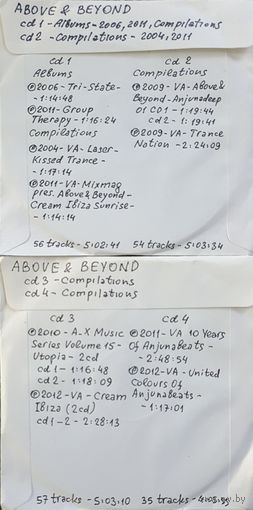 ABOVE & BEYOND
cd 1 - Albums - 2006, 2011, Compilations
cd 2 - Compilations - 2004, 2011
cd 1
Albums
℗2006 - Tri-State -
- 1:14:48
℗2011 - Group
Therapy - 1:16:24
Compilations
℗2004 - VA - Laser-
Kissed Trance -
- 1:17:14
℗2011 - VA - Mixmag
pres. Above & Beyond -
Cream Ibiza Sunrise -
- 1:14:14
56 tracks - 5:02:41
cd 2
Compilations
℗2009 - VA - Above &
Beyond - Anjunadeep
01 CD1 - 1:19:44
cd 2 - 1:19:41
℗2009 - VA - Trance
Nation - 2:24:09
54 tracks - 5:03:34
ABOVE & BEYOND
cd 3 - Compilations
cd 4 - Compilations
cd 3
℗2010 - A-X Music
Series Volume 15 -
Utopia - 2cd
cd 1 - 1:16:48
cd 2 - 1:18:09
℗2012 - VA - Cream
Ibiza (2cd)
cd 1 - 2 - 2:28:13
57 tracks - 5:03:10
cd 4
℗2011 - VA 10 Years
Of Anjunabeats -
- 2:48:54
℗2012 - VA - United
Colours Of
Anjunabeats -
- 1:17:01
35 tracks -